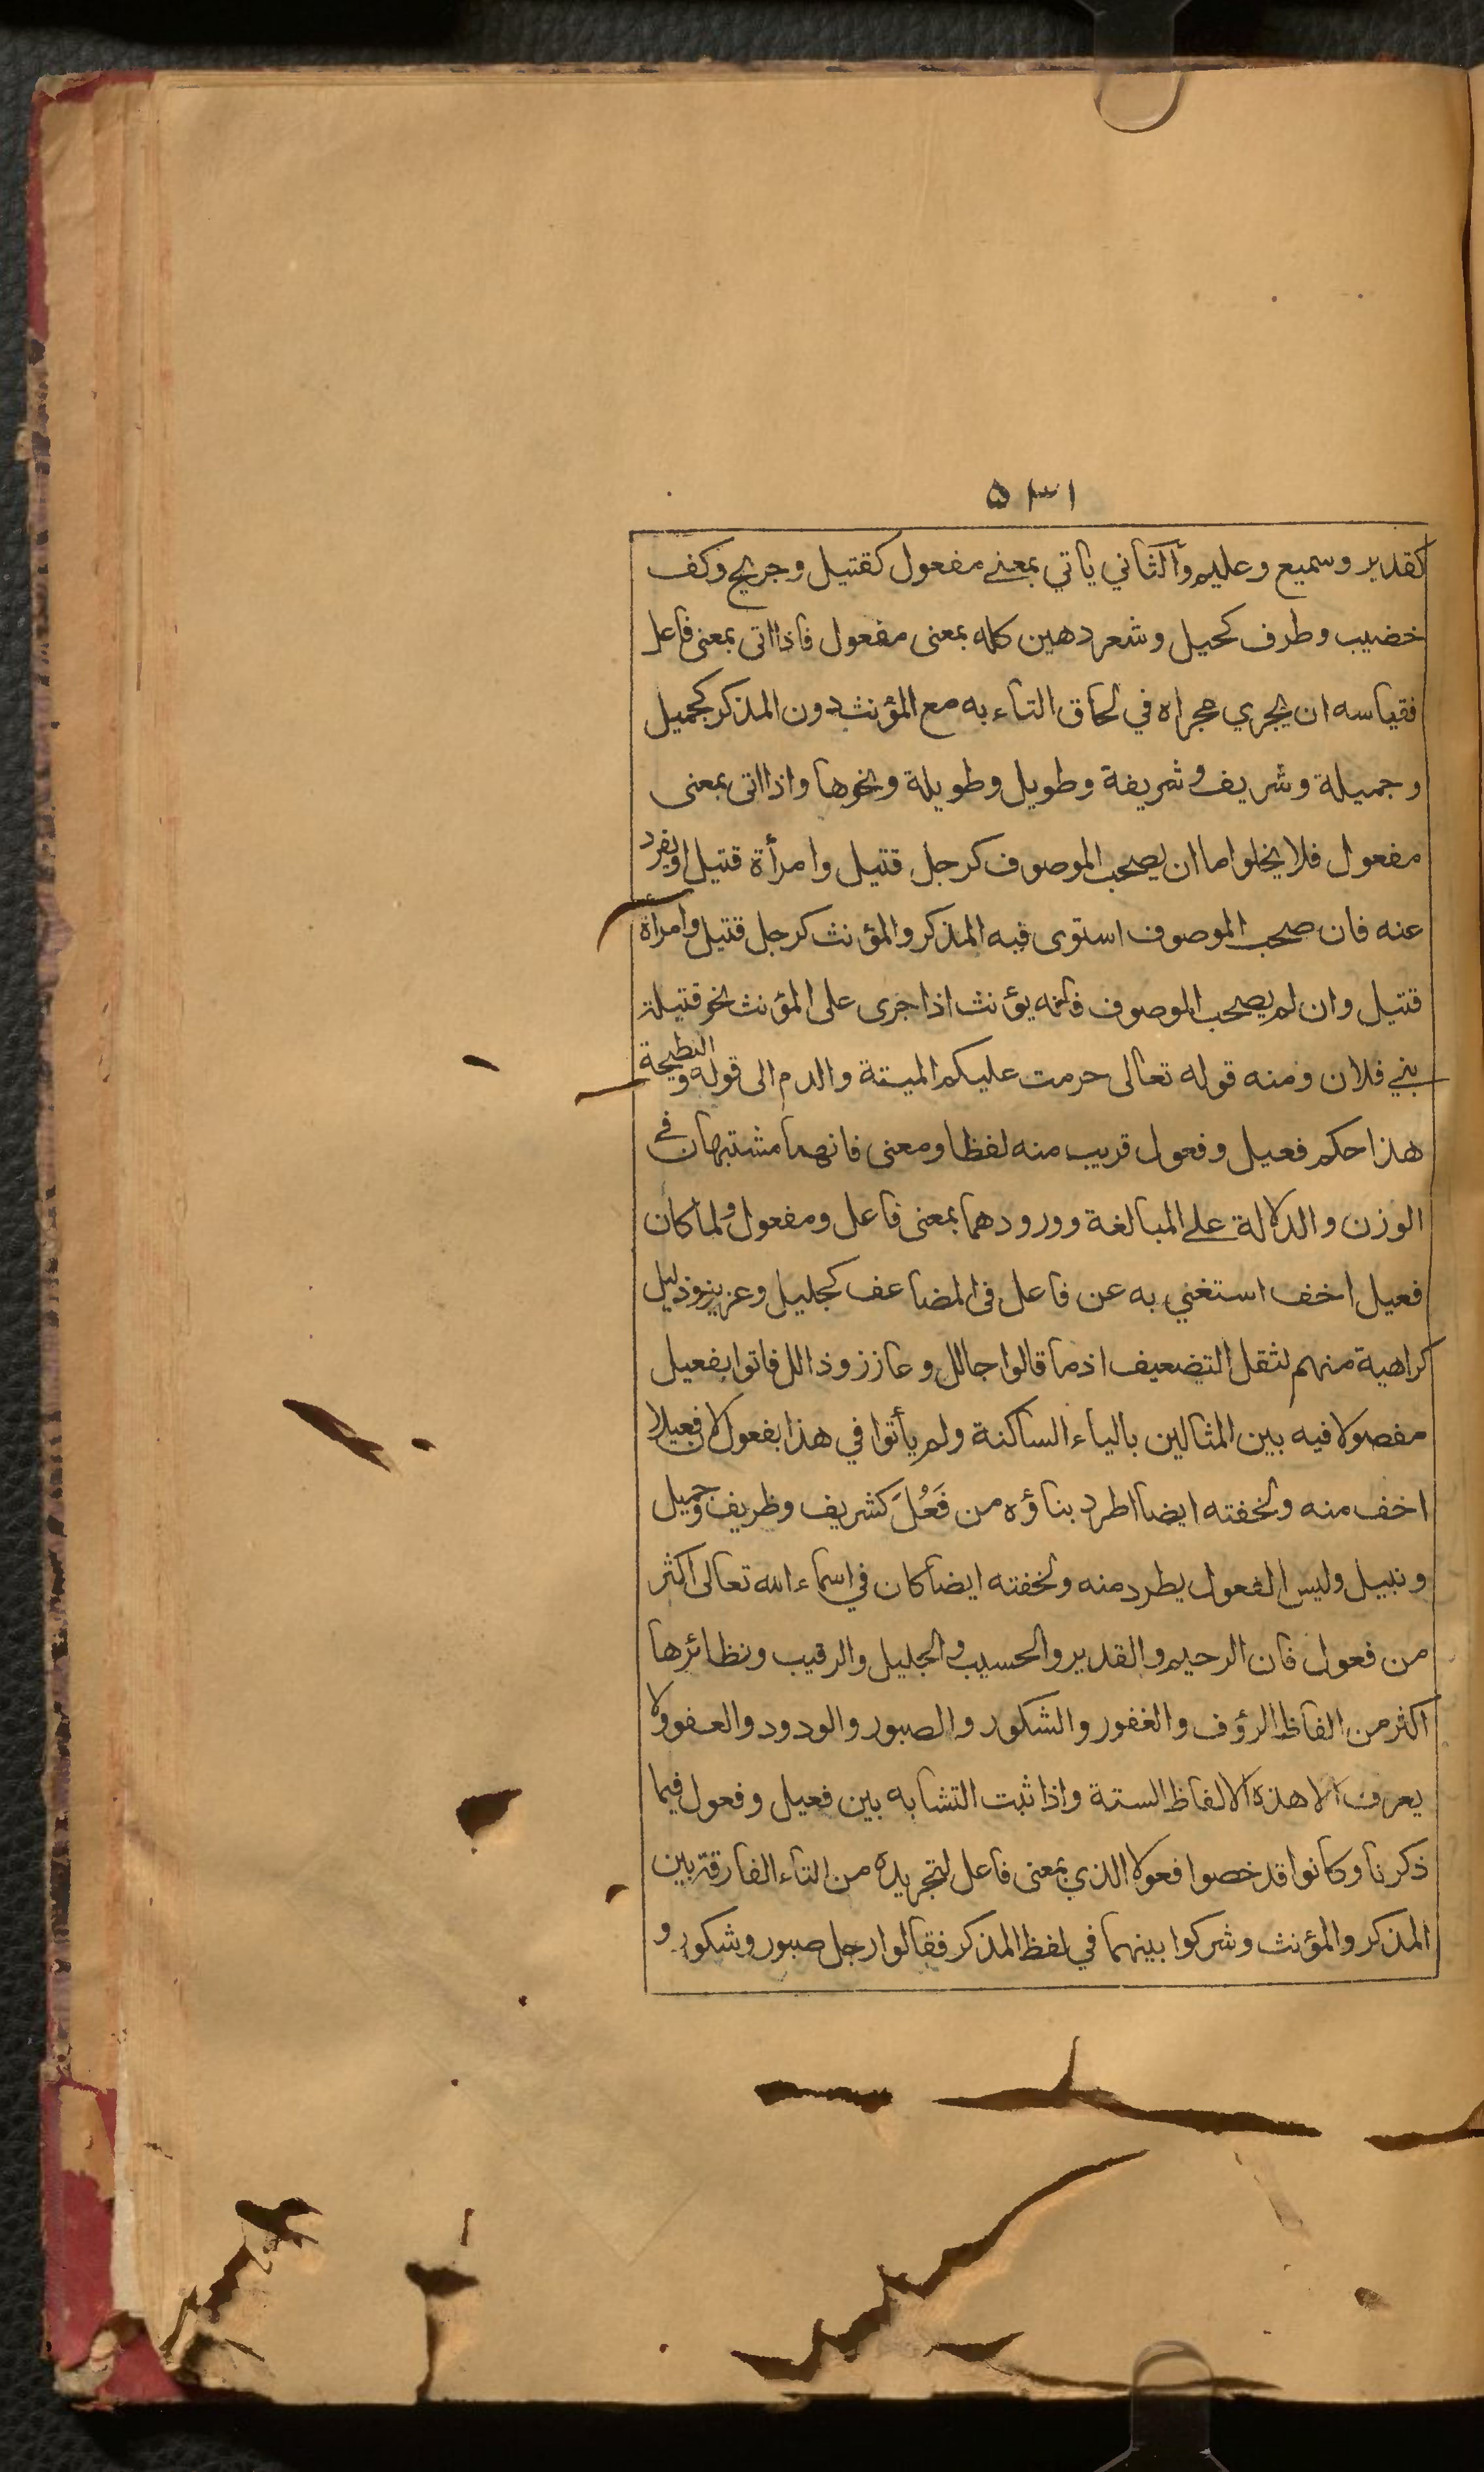 ٥٣١
كقدير وسميع وعليم والثاني ياتي بمعنے مفعول كقتيل وجريح وكف
خضيب وطرف كحيل وشعر دهين كله بمعنى مفعول فاذا اتى بمعنى فاعل
فقياسه ان يجري مجراه في لحاق التاء به مع المؤنث دون المذكر كجميل
وجميلة وشريف وشريفة وطويل وطويلة ونحوها واذا اتى بمعنى
مفعول فلا يخلوا اما ان يصحب الموصوف كرجل قتيل وامرأة قتيل او يفرد
عنه فان صحب الموصوف استوى فيه المذكر والمؤنث كرجل قتيل وامرأة
قتيل وان لم يصحب الموصوف فانه يؤنث اذا جرى على المؤنث نحو قتيلة
بنے فلان ومنه قوله تعالى حرمت عليكم الميتة والدم الى قوله والنطيحة
هذا حكم فعيل وفعول قريب منه لفظا ومعنى فانهما مشتبهان في
الوزن والدلالة علے المبالغة وورودهما بمعنى فاعل ومفعول ولما كان
فعيل اخف استغني به عن فاعل فى المضاعف كجليل وعزيز وذليل
كراهية منهم لثقل التضعيف اذ ما قالوا جالل وعازز وذالل فاتوا بفعيل
مفصولا فيه بين المثالين بالياء الساكنة ولم يأتوا في هذا بفعول لان فعيلا
اخف منه ولخفته ايضا اطرد بناؤه من فَعُلَ كشريف وظريف وجميل
ونبيل وليس الفعول يطرد منه ولخفته ايضا كان في اسماء الله تعالى اكثر
من فعول فان الرحيم والقدير والحسيب والجليل والرقيب ونظائرها
اكثر من الفاظ الرؤف والغفور والشكور والصبور والودود والعفو ولا
يعرف الا هذه الالفاظ الستة واذا ثبت التشابه بين فعيل وفعول فيما
ذكرنا وكانوا قد خصوا فعولا الذي بمعنى فاعل لتجريده من التاء الفارقة بين
المذكر والمؤنث وشركوا بينهما في لفظ المذكر فقالوا رجل صبور وشكور و